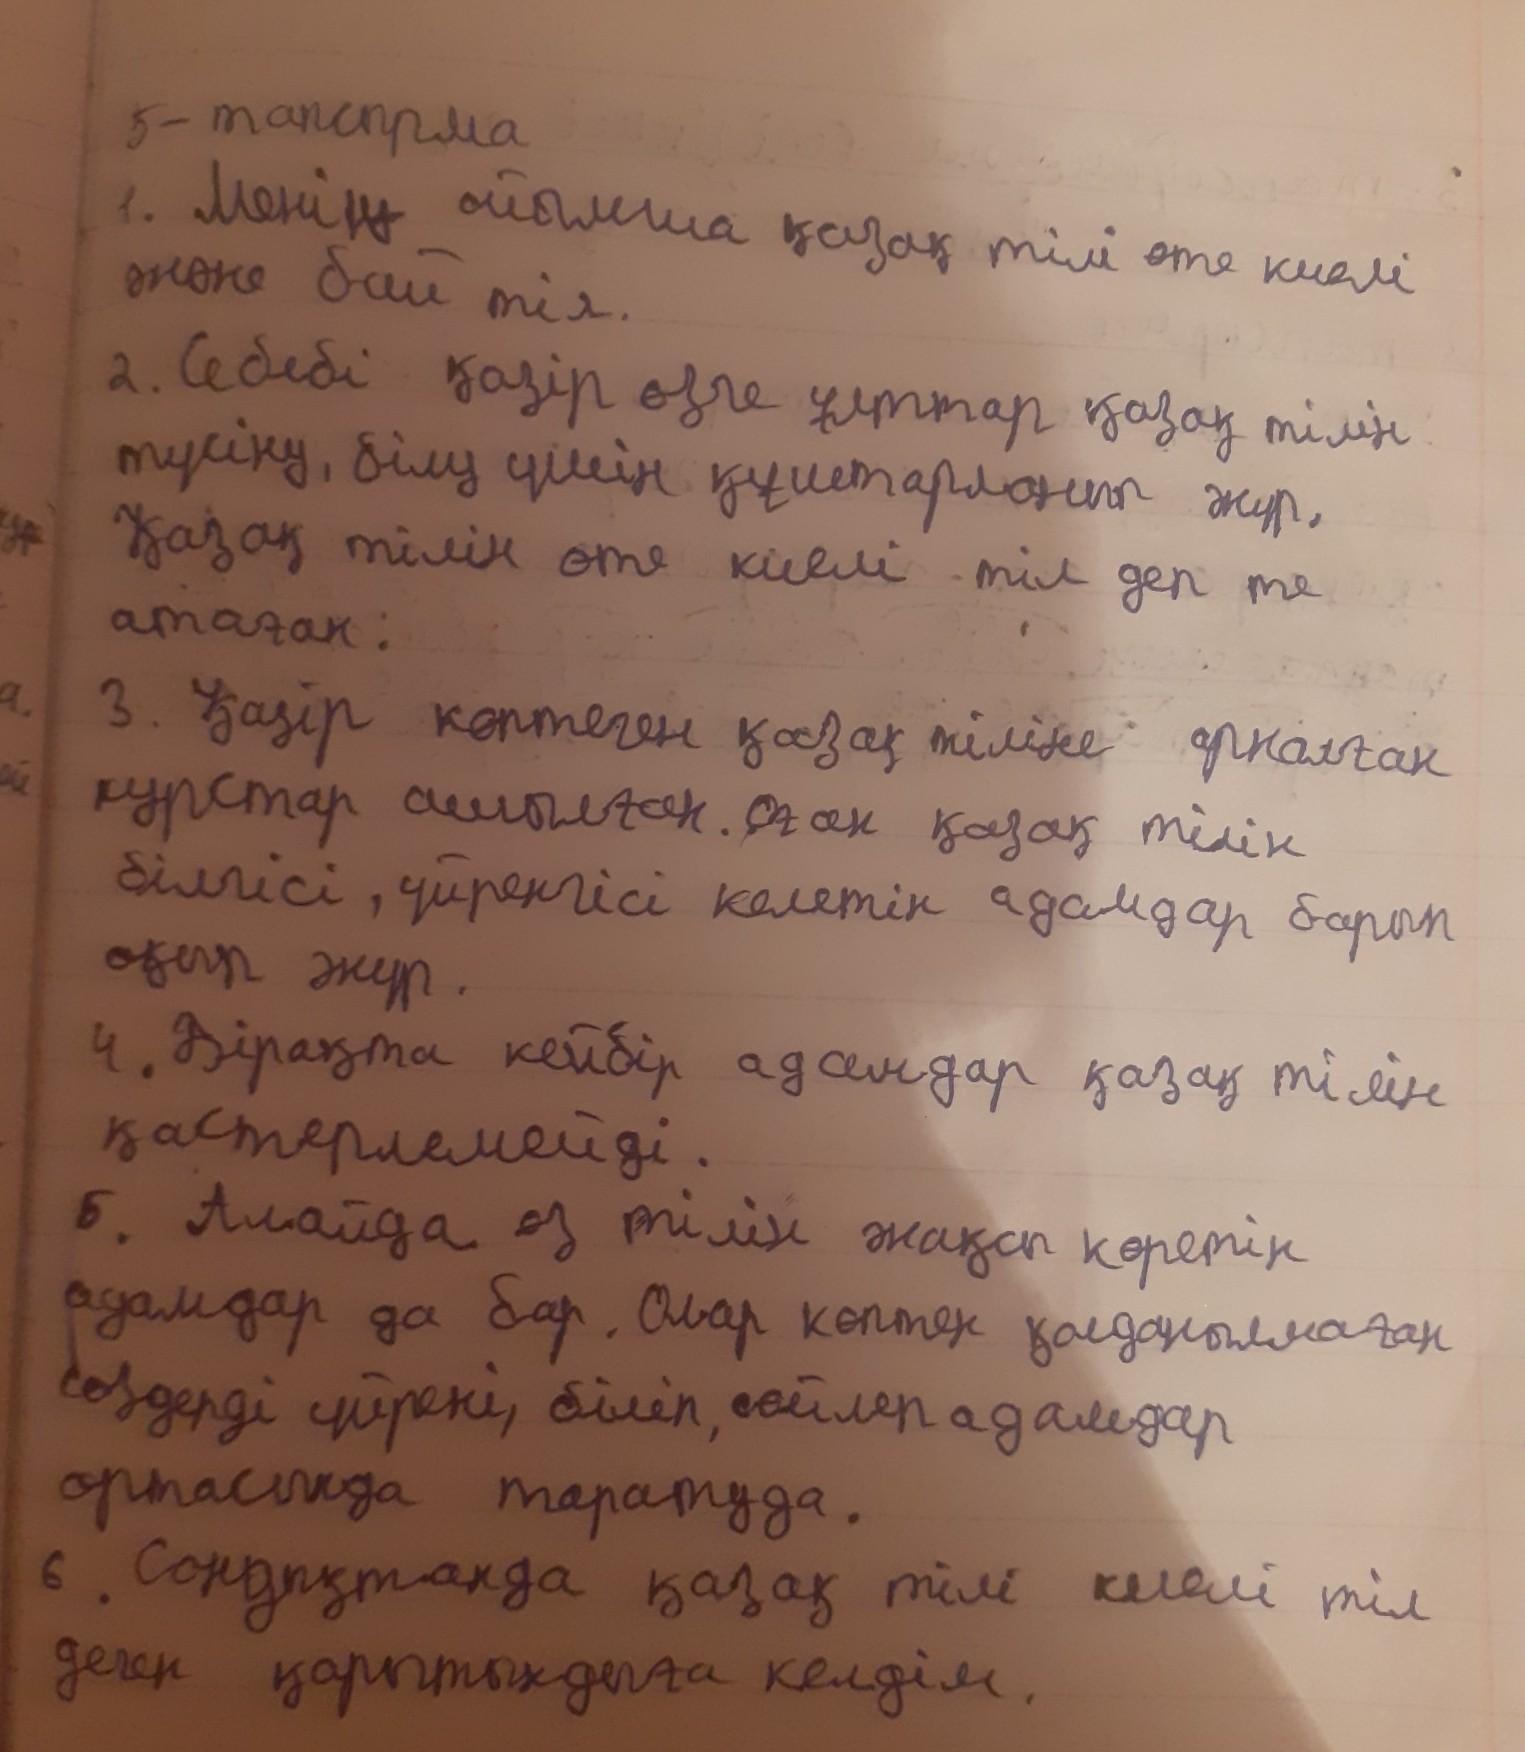 5- тапсырма
1. Менің ойымша қазақ тілі өте киелі
және бай тіл.
2. Себебі қазір өзге ұлттар қазақ тілін
түсіну, білу үшін құштарланып жүр.
Қазақ тілін өте киелі тіл деп те
атаған.
3. Қазір көптеген қазақ тіліне арналған
курстар ашылған. Оған қазақ тілін
білгісі, үйренгісі келетін адамдар барып
оқып жүр.
4. Бірақта кейбір адамдар қазақ тілін
қастерлемейді.
5. Алайда өз тілін жақсы көретін
адамдар да бар. Олар көптен қолданылмаған
сөздерді үйрені, біліп, сөйлеп адамдар
ортасында таратуда.
6. Сондықтанда қазақ тілі киелі тіл
деген қорытындыға келдім.